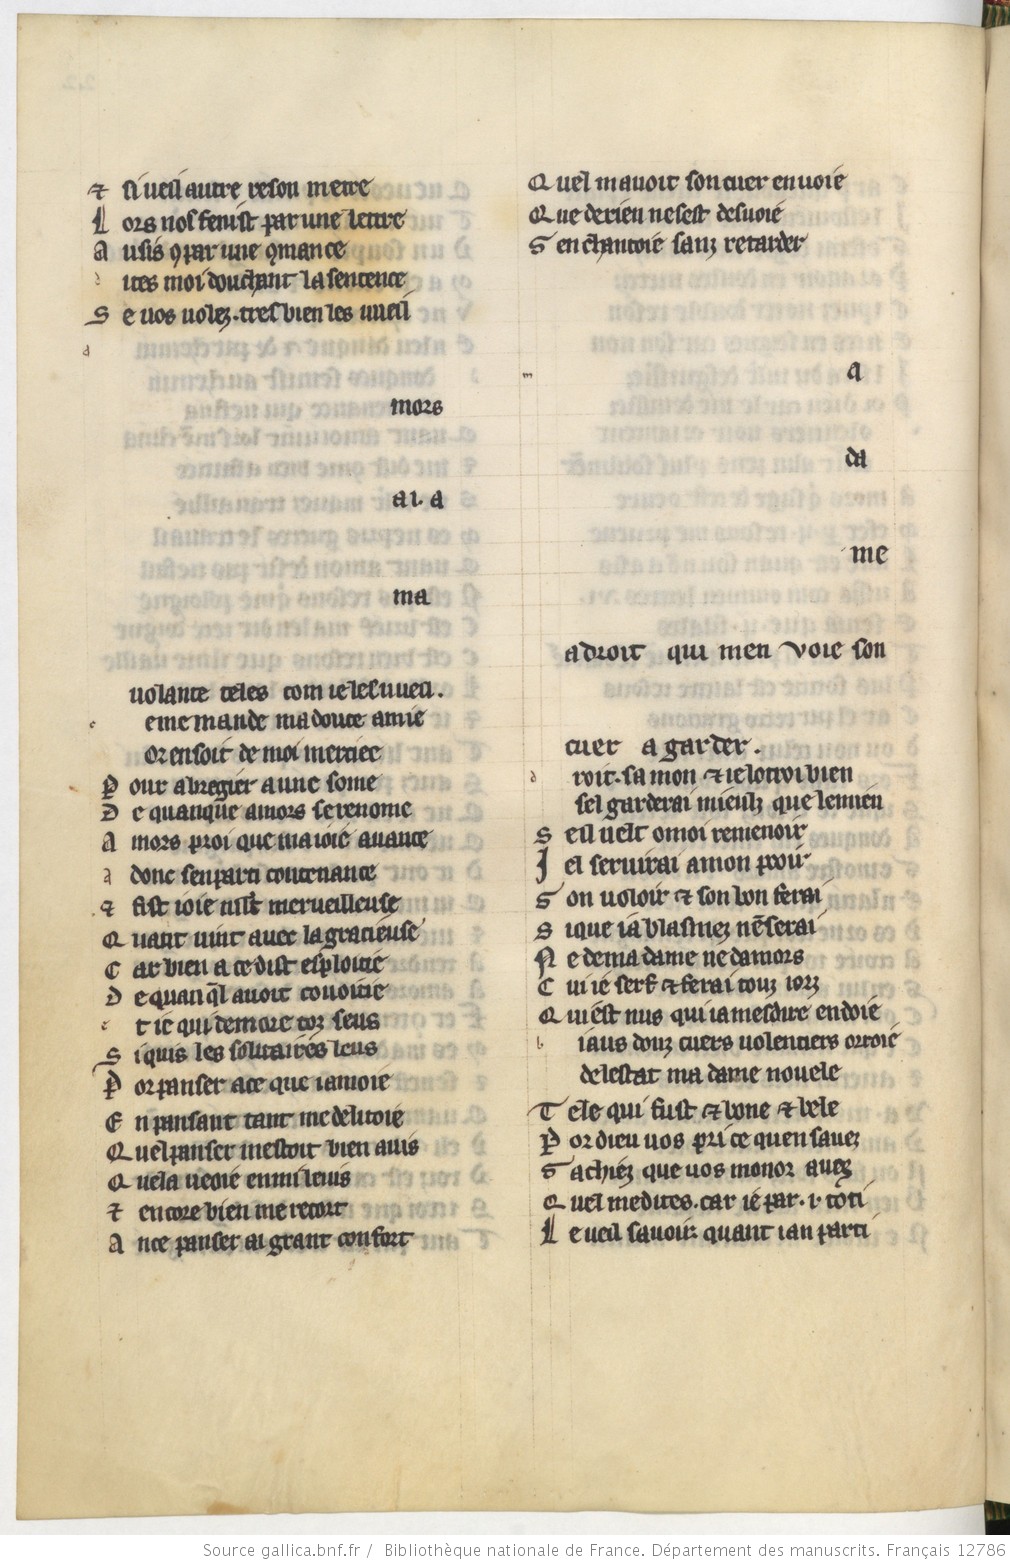 ⁊ si ueil autre reson metre
L ors nos fenist par une lettre
A usis ꝯ par une ꝯmance
d ites moi douchant la sentence
S e uos uolez. tres bien les uueil
d
mors
ai. a
ma
uolante teles com ie les uueil.
e eme mande ma douce amie
or en soit de moi merciee
P our abregier a une some
D e quanque amors se renome
A mors proi que ma ioie auance
a donc sen parti contenance
⁊ fist ioie nest merueilleuse
Q uant uint auec la gracieuse
C ar bien a ce dist esploitie
D e quan q̃l auoit couoitie
e t ie qui demore toz seus
S i quis les solitaires leus
P or panser a ce que iamoie
E n pansant tant me delitoie
Q uel panser mestoit bien auis
Q uela ueoie enmi le uis
⁊ encore bien me recort
A n ce panser ai grant confort
Q uel mauoit son cuer enuoie
Q ue de rien ne sest desuoie
S en chantoie sanz retarder
m
a
da
me
a droit qui men voie son
cuer a garder.
d roit. sa mon ⁊ ie lotroi bien
sel garderai mieulz que le mien
S eil uelt o moi remenoir
J el seruirai a mon pooir
S on uoloir ⁊ son bon ferai
S i que ia blasmez nẽ serai
N e de ma dame ne damors
C ui ie serf ⁊ ferai touz iorz
Q ui est nus qui ia mesdire en doie
b iaus douz cuers uolentiers orroie
de lestat ma dame nouele
T ele qui fust ⁊ bone ⁊ bele
P or dieu uos pri ce quen sauez
S achiez que uos monor auez
Q uel me dites. car ie par. i. toti
L e ueil sauoir quant ian parti
Source gallica.bnf.fr / Bibliothèque nationale de France. Département des manuscrits. Français 12786